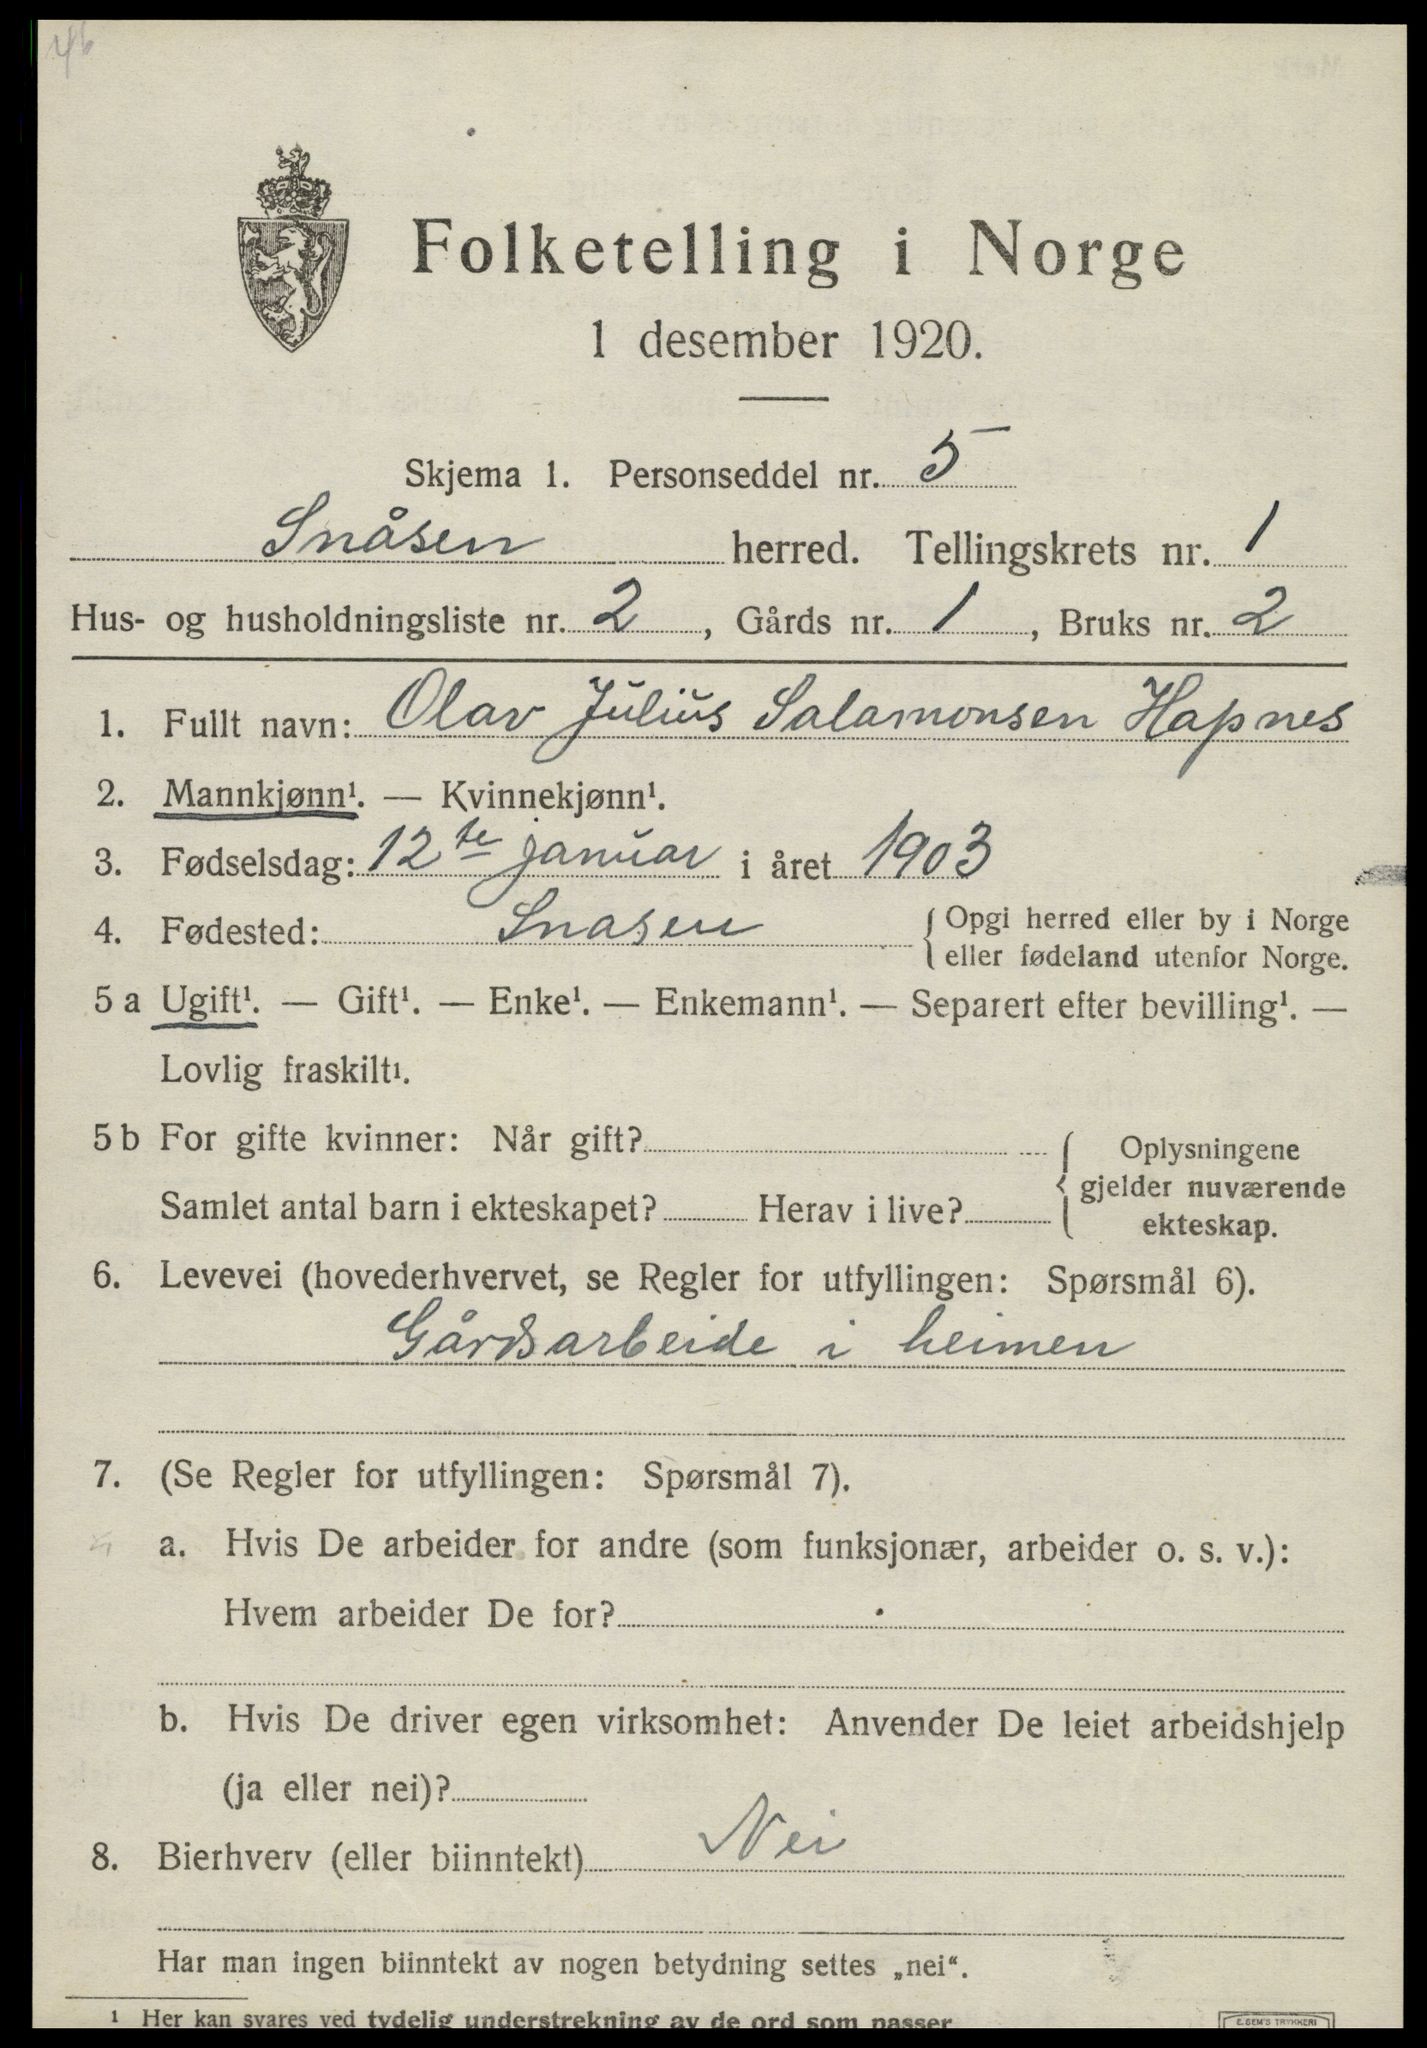 Folketelling i Norge
1 desember 1920.
Skjema 1. Personseddel nr. 5
Snåsen herred. Tellingskrets nr. 1
Hus- og husholdningsliste nr. 2, Gårds nr. 1, Bruks nr. 2
1. Fullt navn: Olav Julius Salamonsen Hapnes
2. Mannkjønn¹. — Kvinnekjønn¹.
3. Fødselsdag: 12te januar i året 1903
4. Fødested: Snasen { Opgi herred eller by i Norge
eller fødeland utenfor Norge.
5 a Ugift¹. — Gift¹. — Enke¹. — Enkemann¹. — Separert efter bevilling¹. —
Lovlig fraskilt¹.
5 b For gifte kvinner: Når gift? { Oplysningene
gjelder nuværende
Samlet antal barn i ekteskapet? Herav i live? ekteskap.
6. Levevei (hovederhvervet, se Regler for utfyllingen: Spørsmål 6).
Gårdsarbeide i heimen
7. (Se Regler for utfyllingen: Spørsmål 7).
a. Hvis De arbeider for andre (som funksjonær, arbeider o. s. v.):
Hvem arbeider De for?
b. Hvis De driver egen virksomhet: Anvender De leiet arbeidshjelp
(ja eller nei)?
8. Bierhverv (eller biinntekt) Nei
Har man ingen biinntekt av nogen betydning settes „nei“.
¹ Her kan svares ved tydelig understrekning av de ord som passer
E. SEM'S TRYKKERI